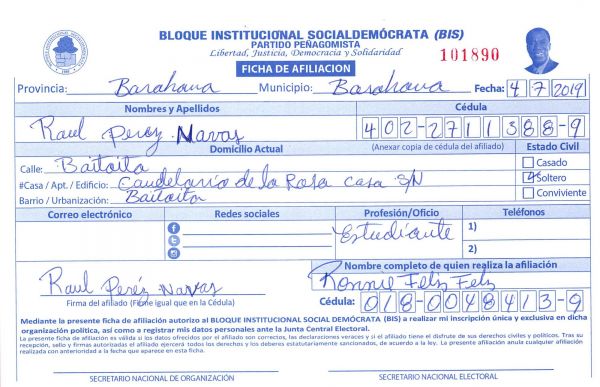 BLOQUE INSTITUCIONAL SOCIALDEMÓCRATA (BIS)
PARTIDO PEÑAGOMISTA
Libertad, Justicia, Democracia y Solidaridad
101890
FICHA DE AFILIACION
Provincia: Barahona Municipio: Barahona Fecha: 4 7 2019
Nombres y Apellidos Cédula
Raul Peréz Navas 402-2711388-9
Domicilio Actual (Anexar copia de cédula del afiliado) Estado Civil
Calle: Baitoita Casado
#Casa / Apt. / Edificio: Candelario de la Rosa casa S/N Soltero
Barrio / Urbanización: Baitoita Conviviente
Correo electrónico Redes sociales Profesión/Oficio Teléfonos
Estudiante 1)
2)
Nombre completo de quien realiza la afiliación
Raul Peréz Navas Ronnie Feliz Feliz
Firma del afiliado (Firme igual que en la Cédula) Cédula: 018-0048413-9
Mediante la presente ficha de afiliación autorizo al BLOQUE INSTITUCIONAL SOCIAL DEMÓCRATA (BIS) a realizar mi inscripción única y exclusiva en dicha
organización política, así como a registrar mis datos personales ante la Junta Central Electoral.
La presente ficha de afiliación es válida si los datos ofrecidos por el afiliado son correctos, las declaraciones veraces y si el afiliado tiene el disfrute de sus derechos civiles y políticos. Tras su
recepción, sello y firmas autorizadas el afiliado ejercerá todos los derechos y los deberes estatutariamente sancionados, de acuerdo a la ley. La presente afiliación anula cualquier afiliación
realizada con anterioridad a la fecha que aparece en esta ficha.
SECRETARIO NACIONAL DE ORGANIZACIÓN SECRETARIO NACIONAL ELECTORAL